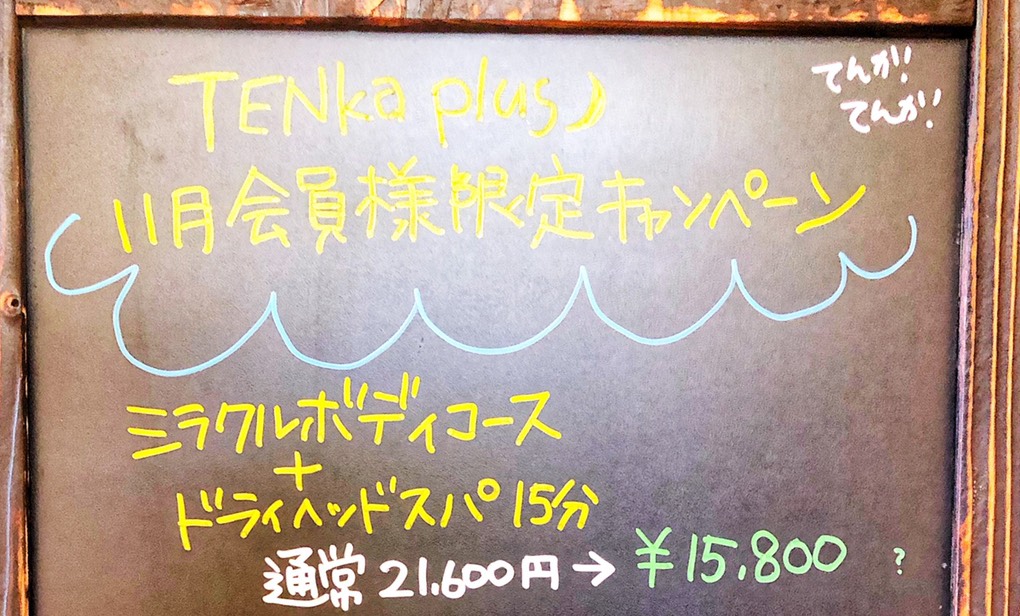 TENka plus♪
てんが!
てんが!
11月会員様限定キャンペーン
ミラクルボディコース
+
ドライヘッドスパ15分
通常21.600円→¥15.800 ?